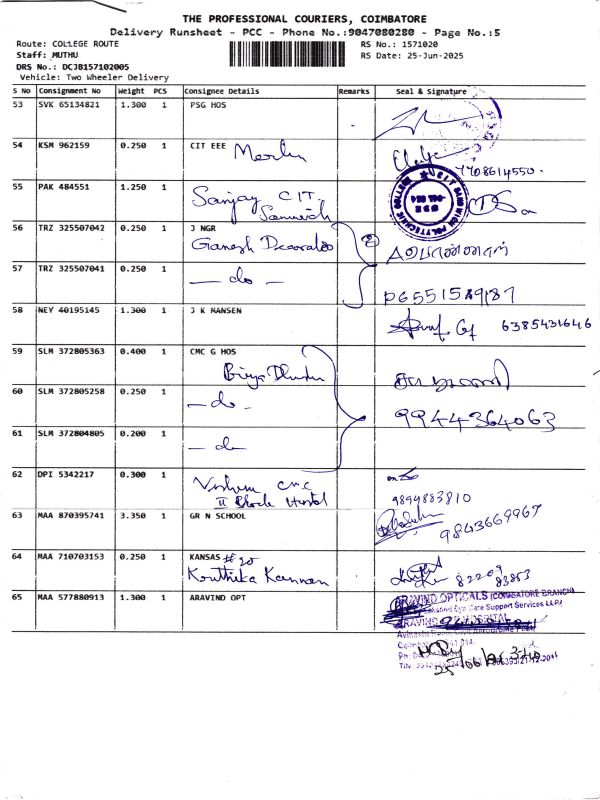 THE PROFESSIONAL COURIERS, COIMBATORE
Delivery Runsheet - PCC - Phone No.:9047080280 - Page No.:5
Route: COLLEGE ROUTE
Staff: MUTHU
DRS No.: DCJB157102005
Vehicle: Two Wheeler Delivery
RS No.: 1571020
RS Date: 25-Jun-2025
S No Consignment No Weight PCS Consignee Details Remarks Seal & Signature
53 SVK 65134821 1.300 1 PSG HOS
54 KSM 962159 0.250 1 CIT EEE
55 PAK 484551 1.250 1
Sanjay CIT
56 TRZ 325507042 0.250 1 J NGR
Ganesh
57 TRZ 325507041 0.250 1
— do —
58 NEY 40195145 1.300 1 J K MANSEN
6385431646
59 SLM 372805363 0.400 1 CMC G HOS
60 SLM 372805258 0.250 1
— do —
9944364063
61 SLM 372804805 0.200 1
— do —
62 DPI 5342217 0.300 1
CMC
II Block Hostel
9894883810
63 MAA 870395741 3.350 1 GR N SCHOOL
9843669967
64 MAA 710703153 0.250 1 KANSAS
Kruthika Kannan
82209
83853
65 MAA 577880913 1.300 1 ARAVIND OPT
ARAVIND OPTICALS (COIMBATORE BRANCH)
Care Support Services LLP)